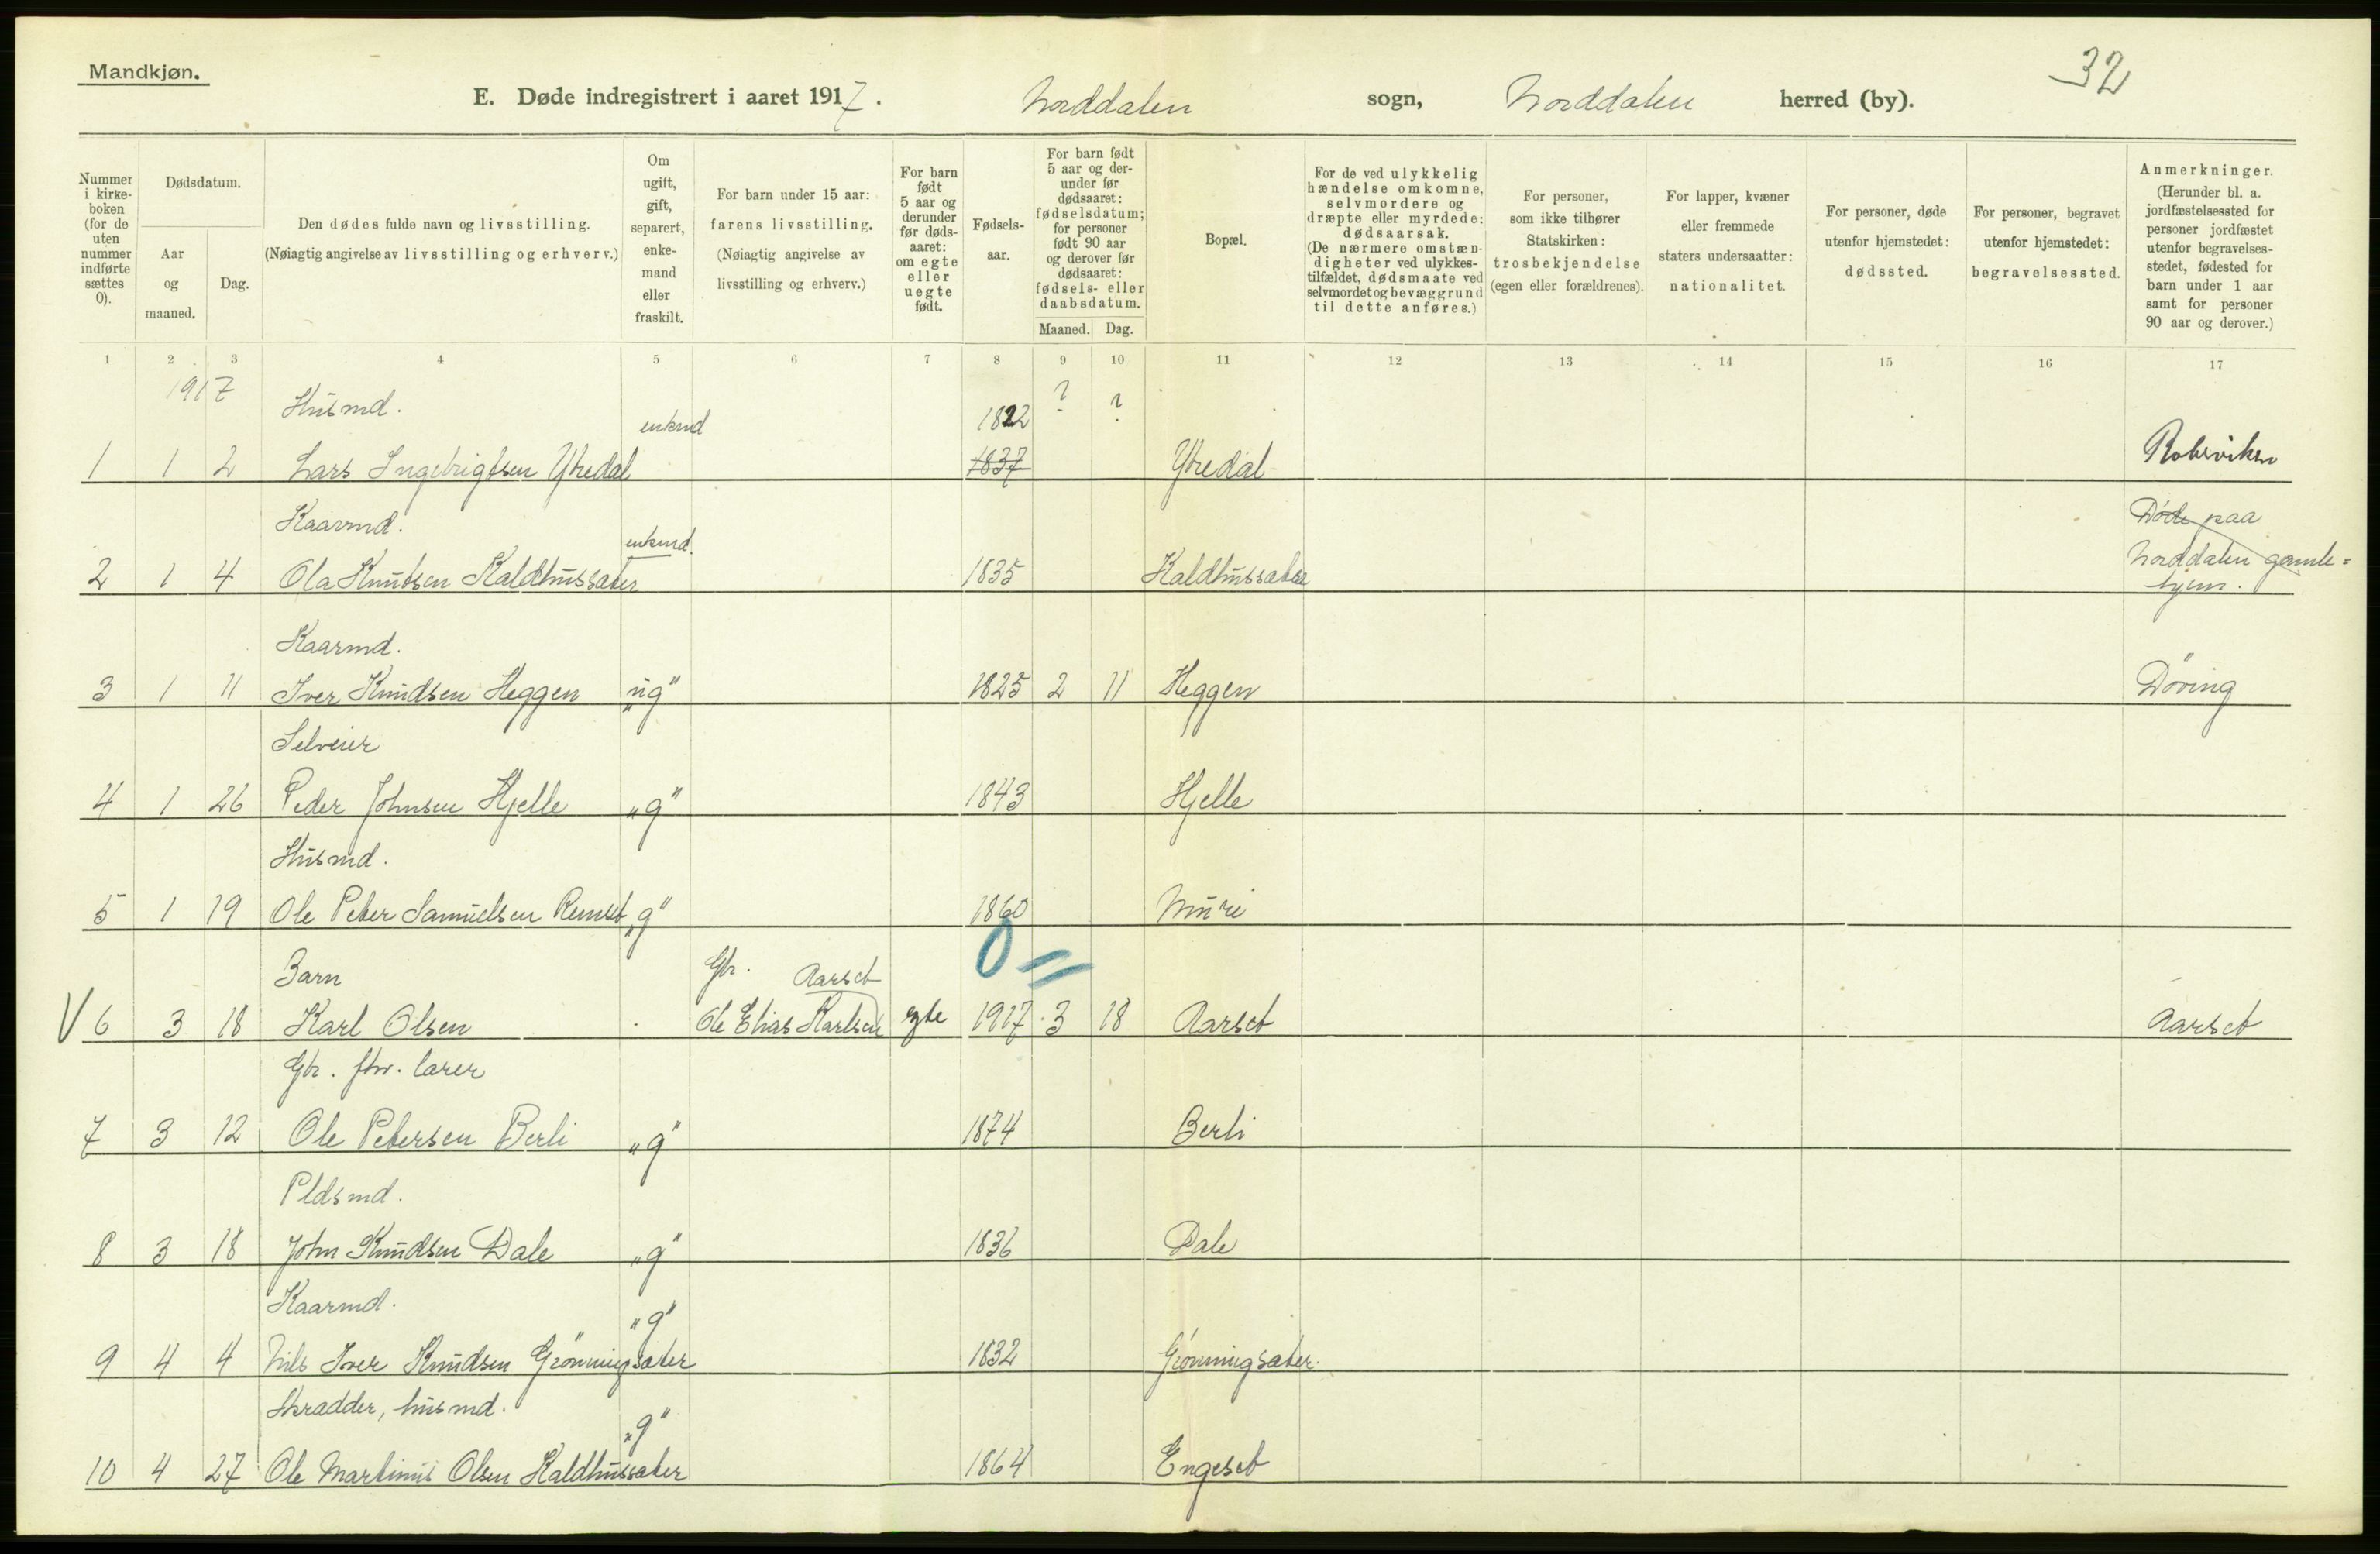 Mandkjøn.
32
E. Døde indregistrert i aaret 1917. Norddalen sogn, Norddalen herred (by).
Nummer i kirke-boken (for de uten nummer indførte sættes 0).
Dødsdatum.
Aar og maaned.
Dag.
Den dødes fulde navn og livsstilling.
(Nøiagtig angivelse av livsstilling og erhverv.)
Om ugift, gift, separert, enke-mand eller fraskilt.
For barn under 15 aar: farens livsstilling.
(Nøiagtig angivelse av livsstilling og erhverv.)
For barn født 5 aar og derunder før døds-aaret: om egte eller uegte født.
Fødsels-aar.
For barn født 5 aar og der-under før dødsaaret: fødselsdatum; for personer født 90 aar og derover før dødsaaret: fødsels- eller daabsdatum.
Maaned. Dag.
Bopæl.
For de ved ulykkelig hændelse omkomne, selvmordere og dræpte eller myrdede: dødsaarsak.
(De nærmere omstæn-digheter ved ulykkes-tilfældet, dødsmaate ved selvmordet og bevæggrund til dette anføres.)
For personer, som ikke tilhører Statskirken: trosbekjendelse (egen eller forældrenes).
For lapper, kvæner eller fremmede staters undersaatter: nationalitet.
For personer, døde utenfor hjemstedet: dødssted.
For personer, begravet utenfor hjemstedet: begravelsessted.
Anmerkninger.
(Herunder bl. a. jordfæstelsessted for personer jordfæstet utenfor begravelses-stedet, fødested for barn under 1 aar samt for personer 90 aar og derover.)
1 2 3 4 5 6 7 8 9 10 11 12 13 14 15 16 17
1917 Husmd. enkmd 1822 ? ?
1 1 2 Lars Ingebrigtsen Ytredal 1837 Ytredal
Kaarmd. enkmd. Døde paa
2 1 4 Ola Knutsen Kaldhussæter 1835 Kaldhussæter Norddalen gamle=
hjem.
Kaarmd.
3 1 11 Iver Knudsen Heggen "ug" 1825 2 11 Heggen Döving
Selveier
4 1 26 Peder Johnsen Hjelle "g" 1843 Hjelle
Husmd.
5 1 19 Ole Peter Samuelsen Remset "g" 1860 Muri
0 =
Barn Gbr. Aarset
V 6 3 18 Karl Olsen Ole Elias Karlsen egte 1917 3 18 Aarset Aarset
Gbr. fhv. lærer
7 3 12 Ole Petersen Berli "g" 1874 Berli
Pldsmd.
8 3 18 John Knudsen Dale "g" 1836 Dale
Kaarmd. "g"
9 4 4 Nils Iver Knudsen Grönningsæter 1832 Grønningsæter.
Skrædder, husmd. "g"
10 4 27 Ole Martinus Olsen Kaldhussæter 1864 Engeset